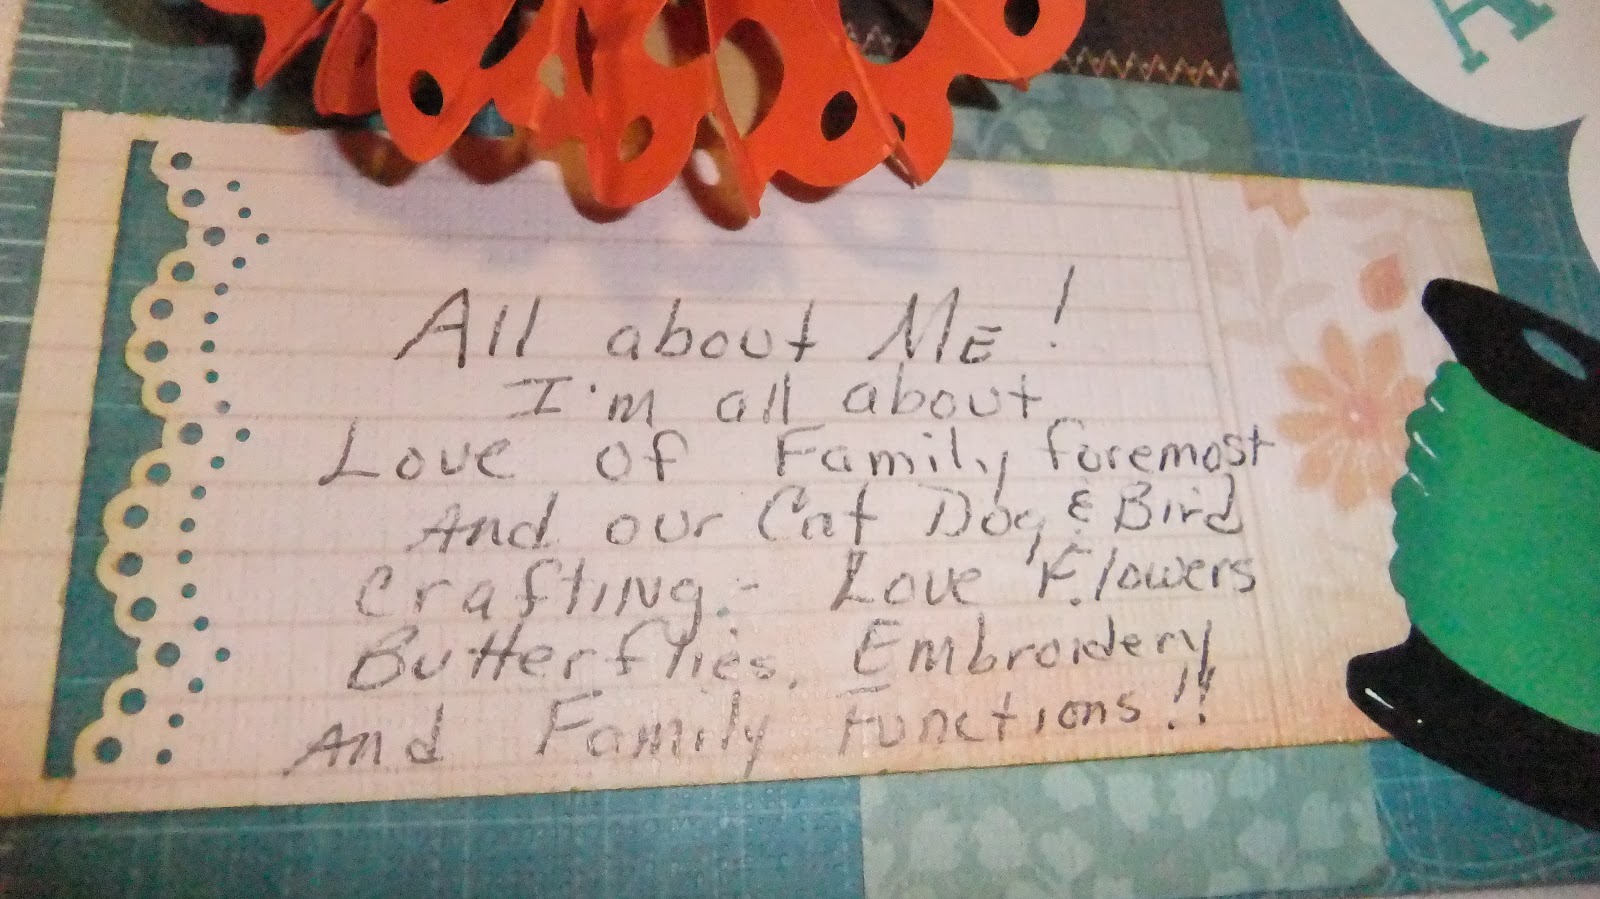 A
All about ME!
I'm all about
Love of Family foremost
And our Cat Dog & Bird
crafting.- Love Flowers
Butterflies. Embroidery
And Family functions!!